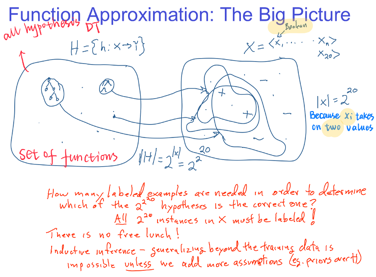 Function Approximation: The Big Picture
all hypothesis DT
Boolean
H = {h: X → Y}
X = <x₁, . . . . xₙ>
x₂₀>
|X| = 2²⁰
Because xi takes
on two values
set of functions
|H| = 2^|X| = 2^2^20
How many labeled examples are needed in order to determine
which of the 2^2^20 hypotheses is the correct one?
All 2²⁰ instances in X must be labeled!
There is no free lunch!
Inductive inference - generalizing beyond the training data is
impossible unless we add more assumptions (eg. priors over H)